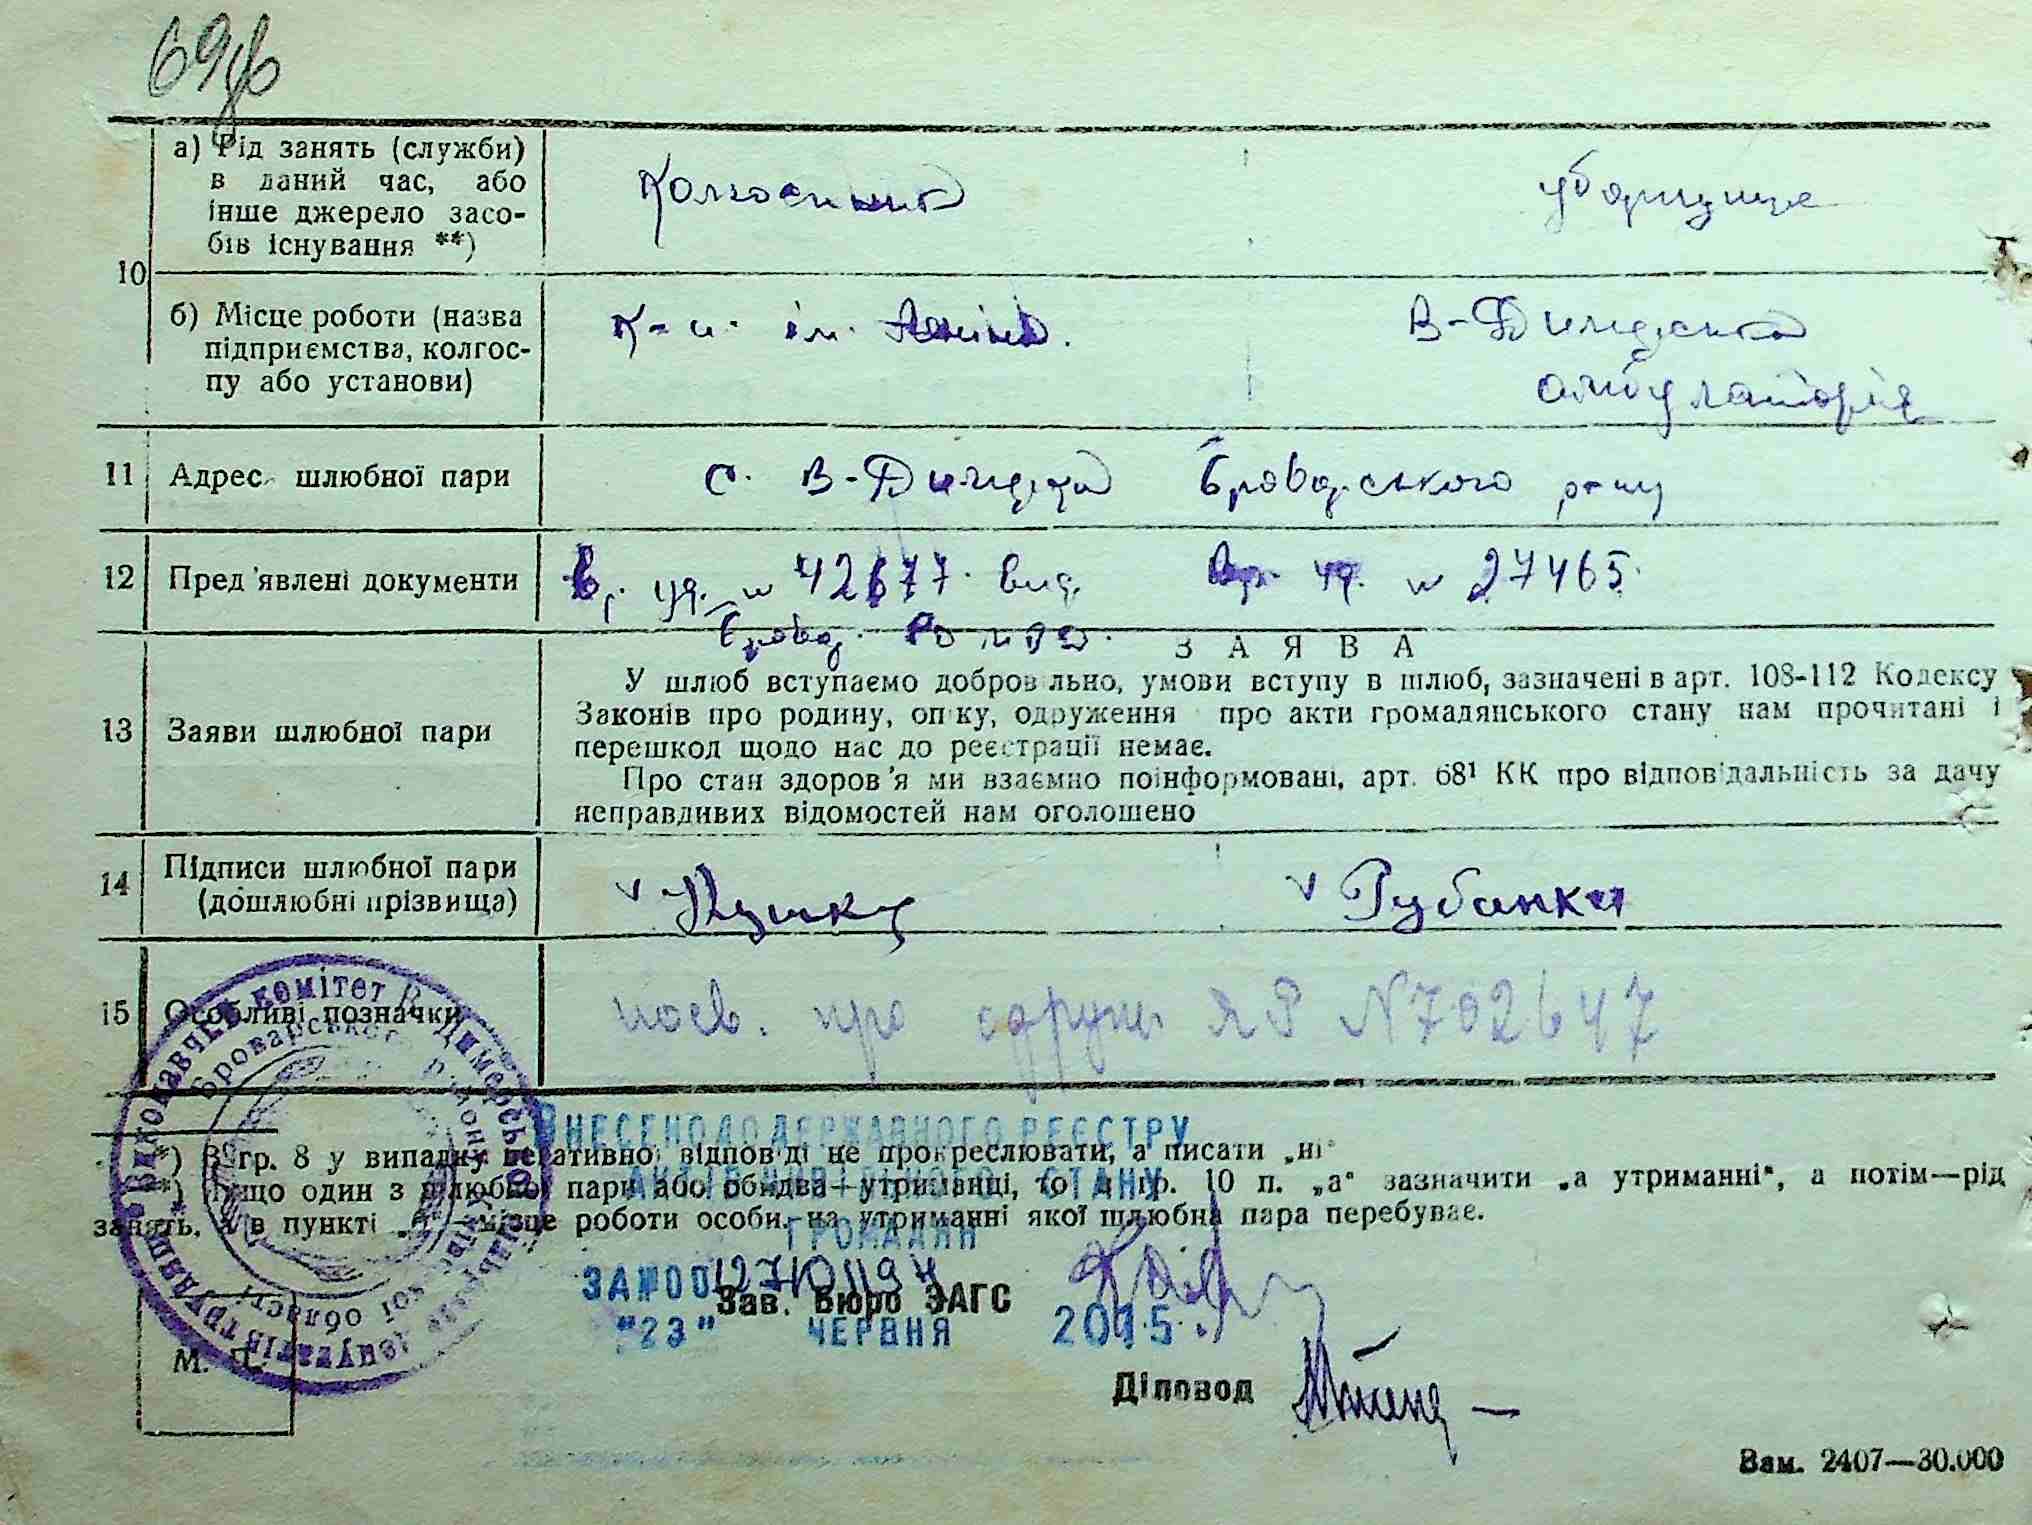 69
а) Рід занять (служби) в даний час, або інше джерело засобів існування **)
Колгоспник
уборщиця
10
б) Місце роботи (назва підприємства, колгоспу або установи)
К-п ім. Леніна.
В-Димерська
амбулаторія
11 Адрес шлюбної пари с. В-Димерка Броварського р-ну
12 Пред'явлені документи вр. уд. № 42677. вид. Вр. уд. № 27465.
Бровар. РО МВД.
ЗАЯВА
У шлюб вступаємо добров льно, умови вступу в шлюб, зазначені в арт. 108-112 Кодексу
13 Заяви шлюбної пари
Законів про родину, оп ку, одруження про акти громадянського стану нам прочитані і
перешкод щодо нас до реєстрації немає.
Про стан здоров'я ми взаємно поінформовані, арт. 68¹ КК про відповідальність за дачу
неправдивих відомостей нам оголошено
14 Підписи шлюбної пари (дошлюбні прізвища)
Рубанка
15 Особливі позначки
посв. про одруж ЯР №702647
Виконавчий комітет В. Димерської
Броварського району Київської області
депутатів трудящих
ВНЕСЕНО ДО ДЕРЖАВНОГО РЕЄСТРУ
*) В гр. 8 у випадку негативної відповіді не прокреслювати, а писати „ні"
АКТІВ ЦИВІЛЬНОГО СТАНУ
**) Якщо один з шлюбної пари або обидва— утриманці, то в гр. 10 п. „а" зазначити „а утриманні", а потім—рід
занять, а в пункті „б"—місце роботи особи, на утриманні якої шлюбна пара перебуває.
ГРОМАДЯН
ЗА №00127101194
Зав. Бюро ЗАГС
"23" ЧЕРВНЯ 2015.
М. П.
Діловод
Зам. 2407—30.000